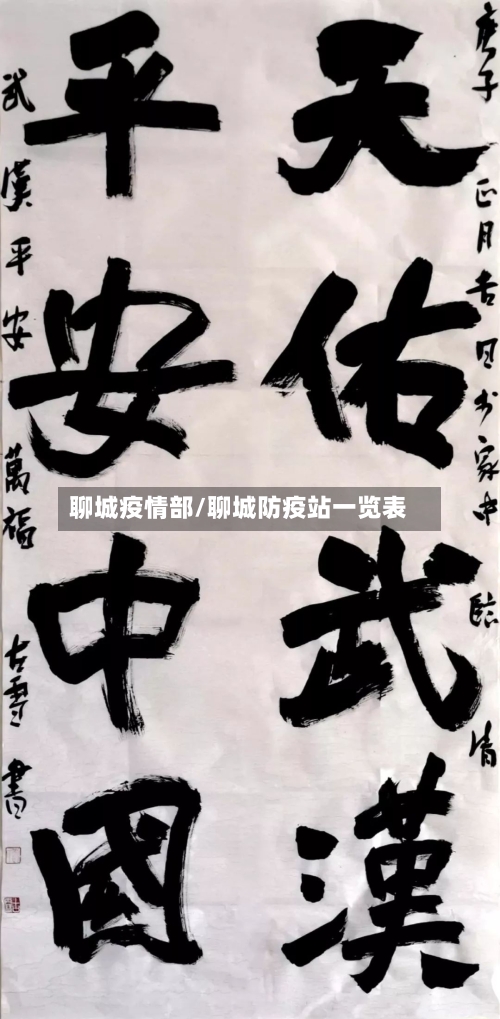 庚子正月吉日书家中
臨清
天佑武漢
平安中國
武漢平安萬福
古雪書
聊城疫情部/聊城防疫站一览表